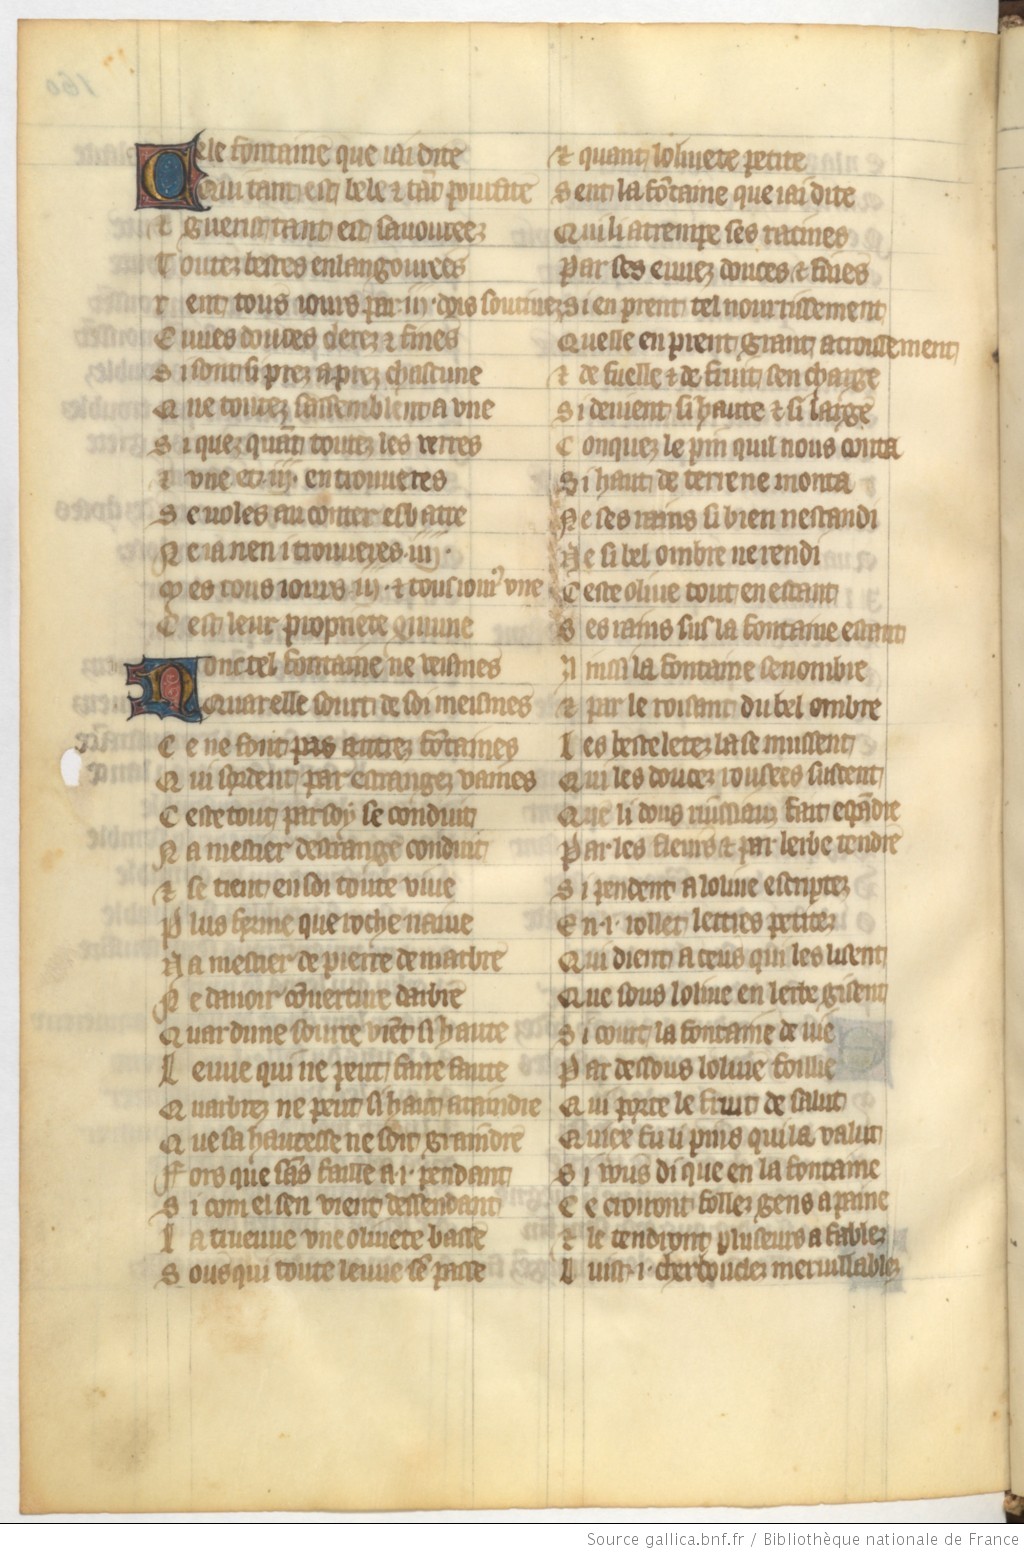 Cele fontaine que iai dite
Qui tant est bele & tāt proufite
& guerist tant est sauouree
Toutez bestes enlangourees
rent tous iours par .iij. dois soutiuez
Euues douces cleres & fines
Si sont si prez a prez chascune
Que toutez sassemblent a vne
Si quez quāt toutez les verres
& vne et .iij. en trouueres
Se voles au conter esbatre
Ne ia nen i trouueres .iiij.
Mes tous iours .iij. & tousiours vne
Cest leur propriete quiune
Donc tel fontaine ne veismes
Quar elle sourt de soi meismes
Ce ne font pas autrez fōtaines
Qui sordent par estrangez vaines
Ceste tout par soy se conduit
Na mestier destrange conduit
& se tient en soi toute viue
Plus ferme que roche naiue
Na mestier de pierre de marbre
Ne dauoir couuerture darbre
Quar dune sourse viēt si haute
Leuue qui ne peut faire faute
Quarbrez ne peut si haut ataindre
Que sa hautesse ne soit graindre
Fors que sās faille a .i. pendant
Si com el sen vient dessendant
La treuue vne oliuete basse
Sous qui toute leuue sē passe
& quant loliuete petite
Sent la fōtaine que iai dite
Qui li atrempe ses racines
Par ses euuez douces & fines
Si en prent tel nourrissement
Quelle en prent grant acroissement
& de fuelle & de fruit sen charge
Si deuient si haute & si large
Conquez le pin quil nous conta
Si haut de terre ne monta
Ne ses rains si bien nestandi
Ne si bel ombre ne rendi
Ceste oliue tout en estant
Ses rains sus la fontaine estant
Ainsi la fontaine senombre
& par le roisant du bel ombre
Les besteletez la se mussent
Qui les doucez rousees sucent
Que li dous ruissiaux fait espādre
Par les fleurs & par lerbe tendre
Si pendent a loliue escriptez
En .i. rollet lettres petitez
Qui dient a ceus qui les lisent
Que sous loliue en lerbe gisent
Si court la fontaine de vie
Par dessous loliue foillie
Qui porte le fruit de salut
Quiex fu li pins qui la valut
Si vous di que en la fontaine
Ce croiront follez gens a paine
& le tendront pluseurs a fablez
Luist .i. cherbouclez merueillablez
Source gallica.bnf.fr / Bibliothèque nationale de France